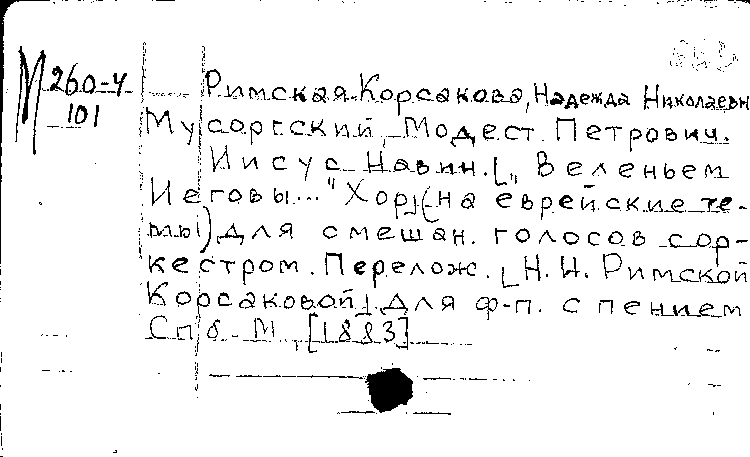 М 260-4
101
Римская-Корсакова, Надежда Николаевн
Мусоргский, Модест Петрович.
Иисус Навин. [„Веленьем
Иеговы..." Хор] (на еврейские те-
мы) для смешан. голосов с ор-
кестром. Перелож. [Н. Н. Римской
Корсаковой] для ф-п. с пением
Спб - М, [1883]